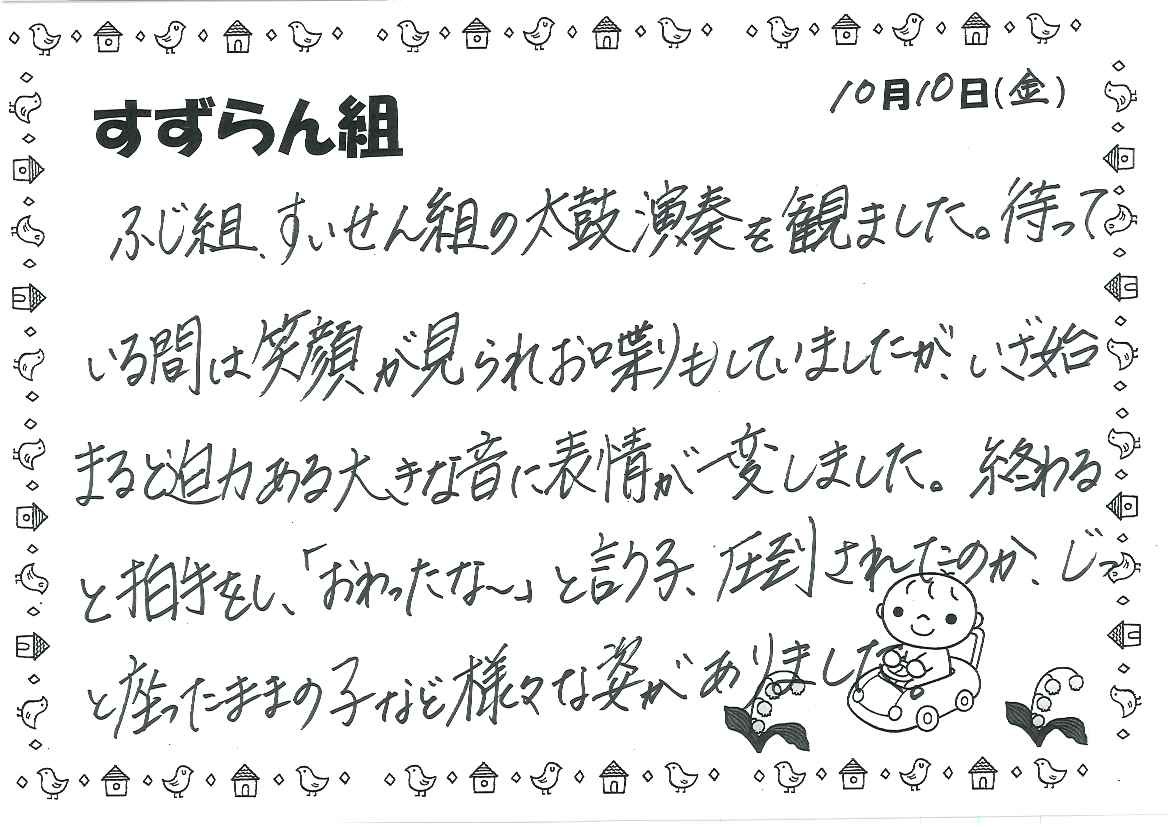 すずらん組
10月10日(金)
ふじ組、すいせん組の太鼓演奏を観ました。待って
いる間は笑顔が見られお喋りもしていましたが、いざ始
まると迫力ある大きな音に表情が一変しました。終わる
と拍手をし、「おわったな〜」と言う子、圧倒されたのか、じっ
と座ったままの子など様々な姿がありました。